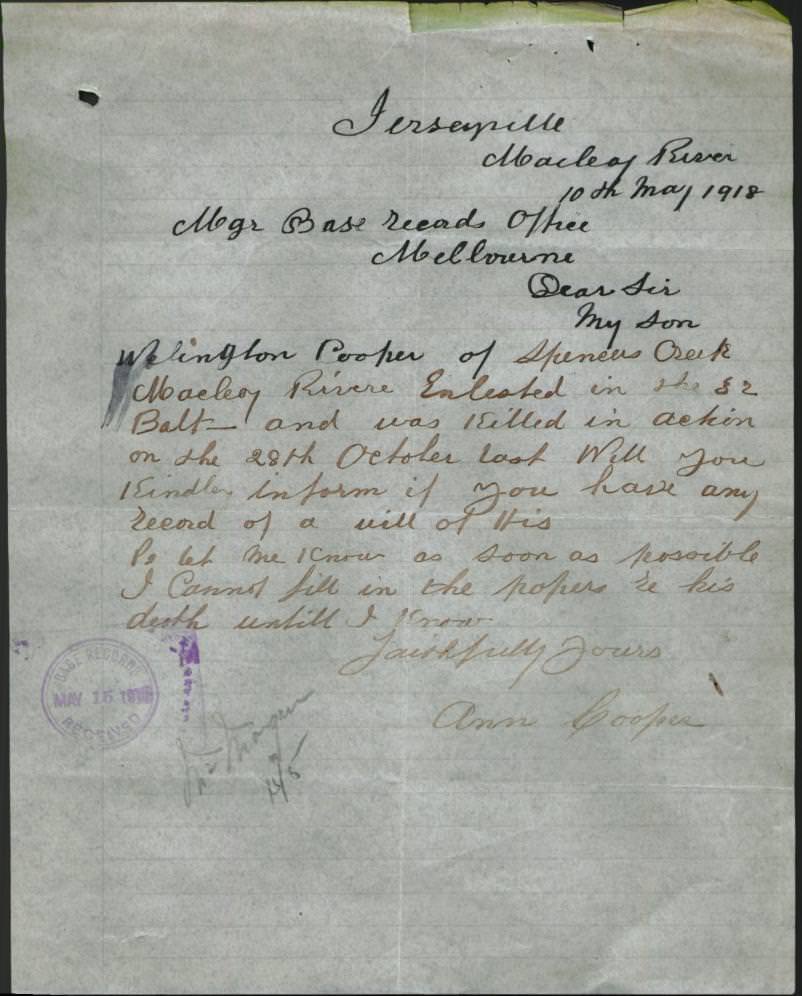 Jerseyville
Macleay River
10th May 1918
Mgr Base records Office
Melbourne
Dear Sir
My Son
Welington Cooper of Spencers Creek
Macleay Rivere Enlested in the 32
Balt and was Killed in action
on the 28th October last Will you
Kindley inform if you have any
record of a will of His
Ps let me Know as soon as possible
I Cannot fill in the papers re his
death untill I Know
Faithfully Yours
Ann Cooper
BASE RECORDS
MAY 15 1918
RECEIVED